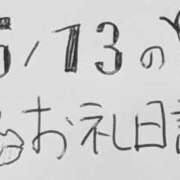 5/13の
お礼日